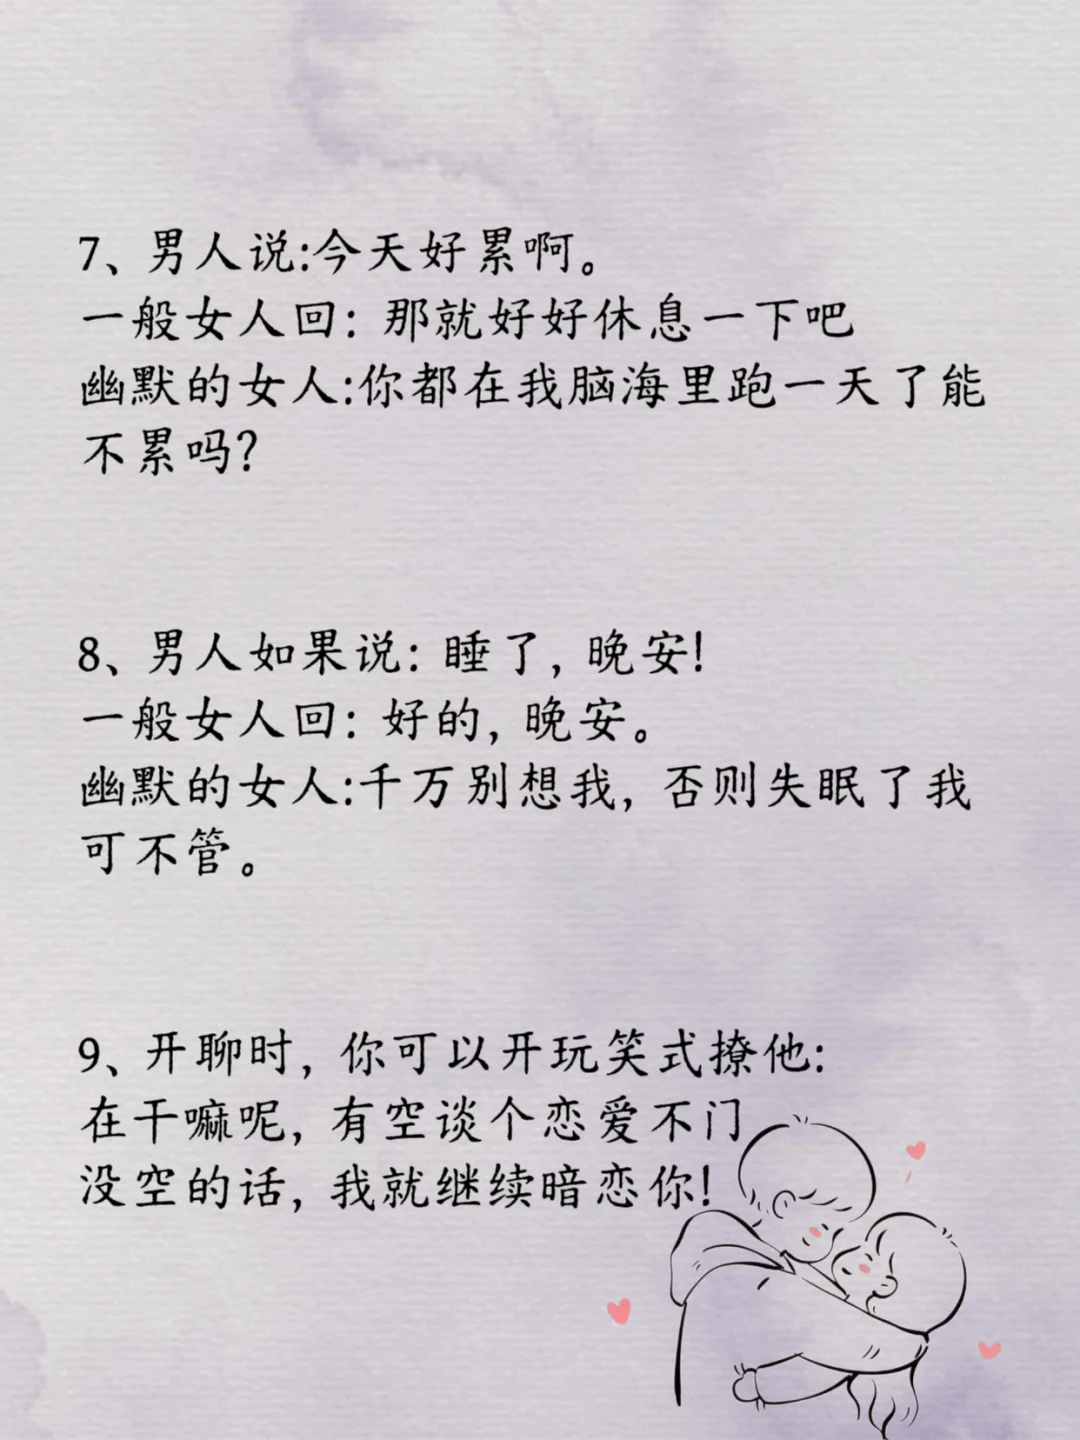 7、男人说:今天好累啊。
一般女人回：那就好好休息一下吧
幽默的女人:你都在我脑海里跑一天了能
不累吗?
8、男人如果说：睡了，晚安!
一般女人回：好的，晚安。
幽默的女人:千万别想我，否则失眠了我
可不管。
9、开聊时，你可以开玩笑式撩他:
在干嘛呢，有空谈个恋爱不门
没空的话，我就继续暗恋你!